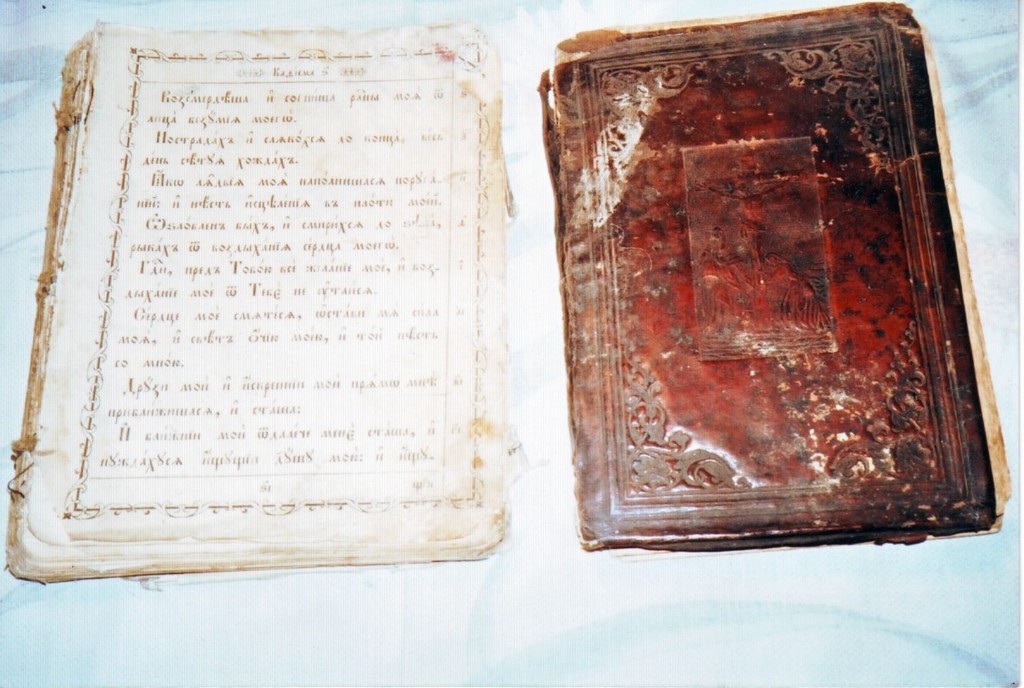 Каѳисма
Возсмердѣша и҆ согниша раны моѧ̀ ѿ
лица̀ безꙋмїѧ моегѡ̀.
Пострада́хъ и҆ слѧко́хсѧ до конца̀, весь
де́нь сѣ́тꙋѧ хожда́хъ.
Ꙗ҆́кѡ лѧ̑двїѧ моѧ̑ напо́лнишасѧ порꙋга́-
нїй: и҆ нѣ́сть и҆сцѣле́нїѧ въ пло́ти мое́й.
Ѡ҆ѕло́бленъ бы́хъ, и҆ смири́хсѧ до
рыка́хъ ѿ воздыха́нїѧ се́рдца моегѡ̀.
Гдⷭ҇и, предъ Тобо́ю всѐ жела́нїе моѐ, и҆ воз-
дыха́нїе моѐ ѿ Тебє̀ не ᲂу҆таи́сѧ.
Се́рдце моѐ смѧте́сѧ, ѡ҆ста́ви мѧ̀ си́ла
моѧ̀, и҆ свѣ́тъ ѻ҆́чїю моє́ю, и҆ то́й нѣ́сть
со мно́ю.
Дрꙋ́зи мои̑ и҆ и҆́скреннїи мои̑ прѧ́мѡ мнѣ̀
прибли́жишасѧ, и҆ ста́ша:
И҆ бли́жнїи мои̑ ѿдале́че менє̀ ста́ша, и҆
нꙋжда́хꙋсѧ и҆́щꙋщїи дꙋ́шꙋ мою̀: и҆ и҆́щꙋ-